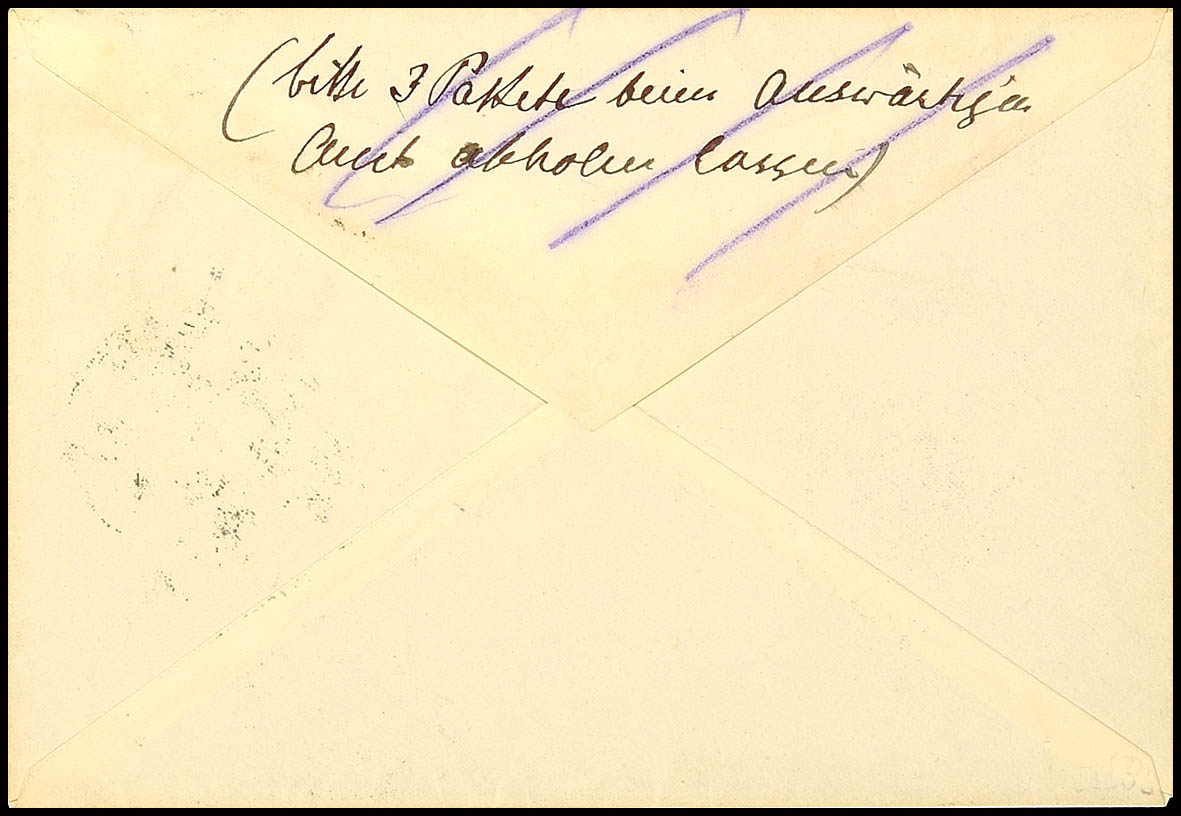 (bitte 3 Pakete beim Auswärtigen
Amt abholen lassen)